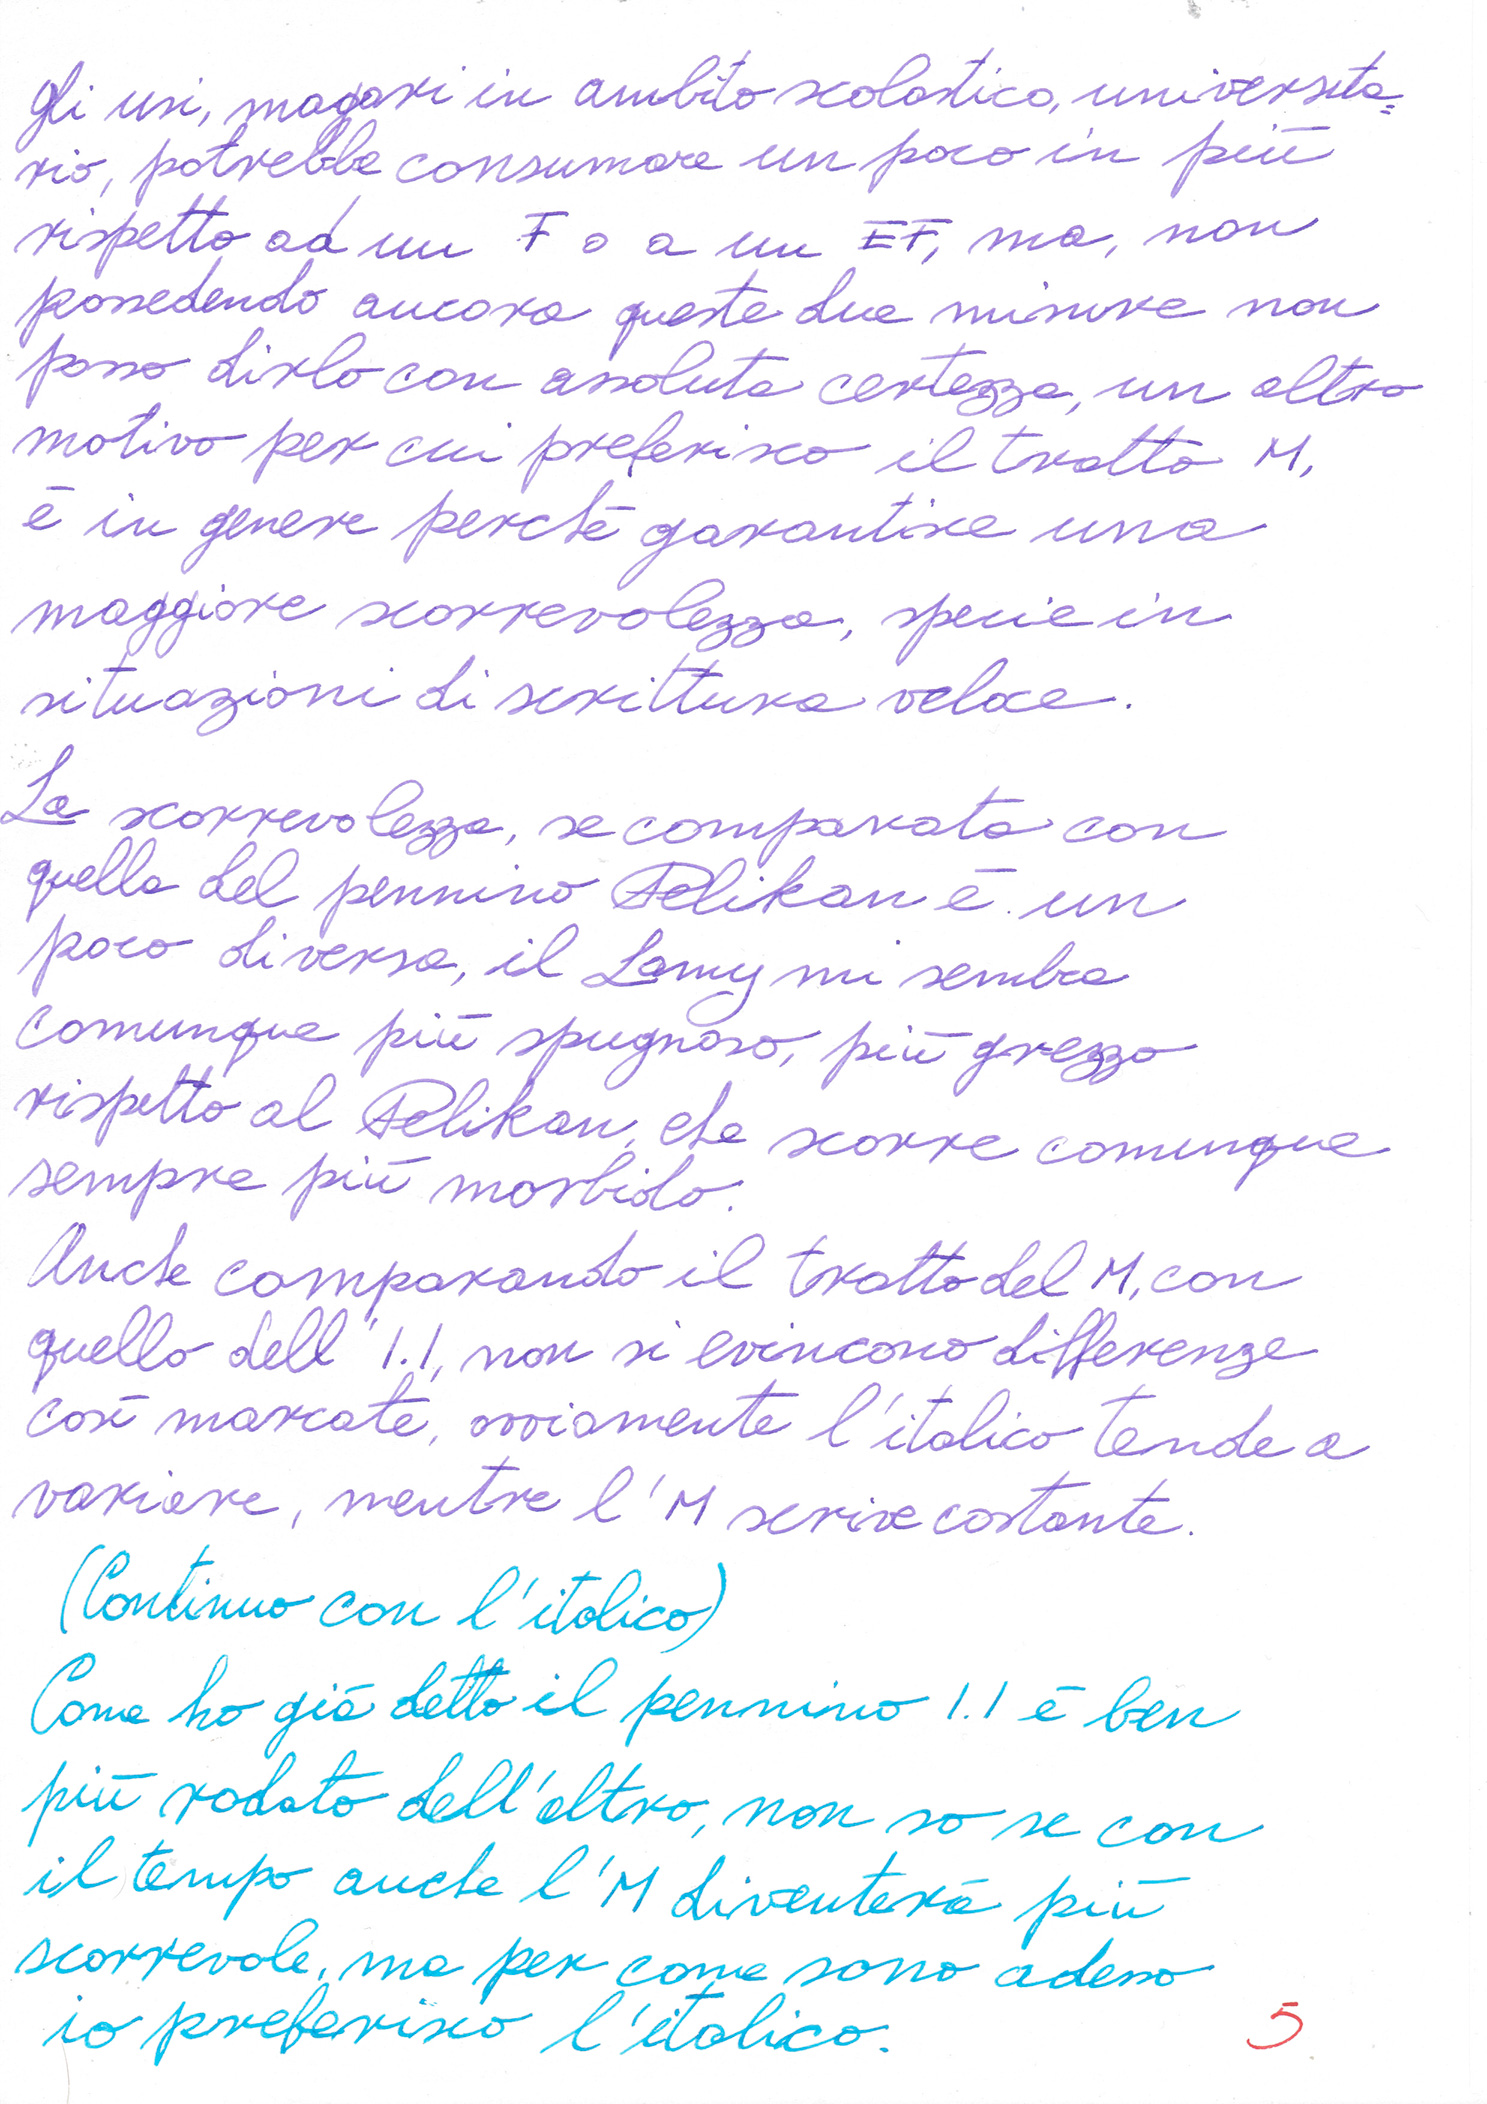 gli usi, magari in ambito scolastico, universita=
rio, potrebbe consumare un poco in più
rispetto ad un F o a un EF, ma, non
possedendo ancora queste due misure non
posso dirlo con assoluta certezza, un altro
motivo per cui preferisco il tratto M,
è in genere perchè garantisce una
maggiore scorrevolezza, specie in
situazioni di scrittura veloce.
La scorrevolezza, se comparata con
quella del pennino Pelikan è un
poco diversa, il Lamy mi sembra
comunque più spugnoso, più grezzo
rispetto al Pelikan, che scorre comunque
sempre più morbido.
Anche comparando il tratto del M, con
quello dell'1.1, non si evincono differenze
così marcate, ovviamente l'italico tende a
variare, mentre l'M scrive costante.
(Continuo con l'italico)
Come ho già detto il pennino 1.1 è ben
più rodato dell'altro, non so se con
il tempo anche l'M diventerà più
scorrevole, ma per come sono adesso
io preferisco l'italico.
5